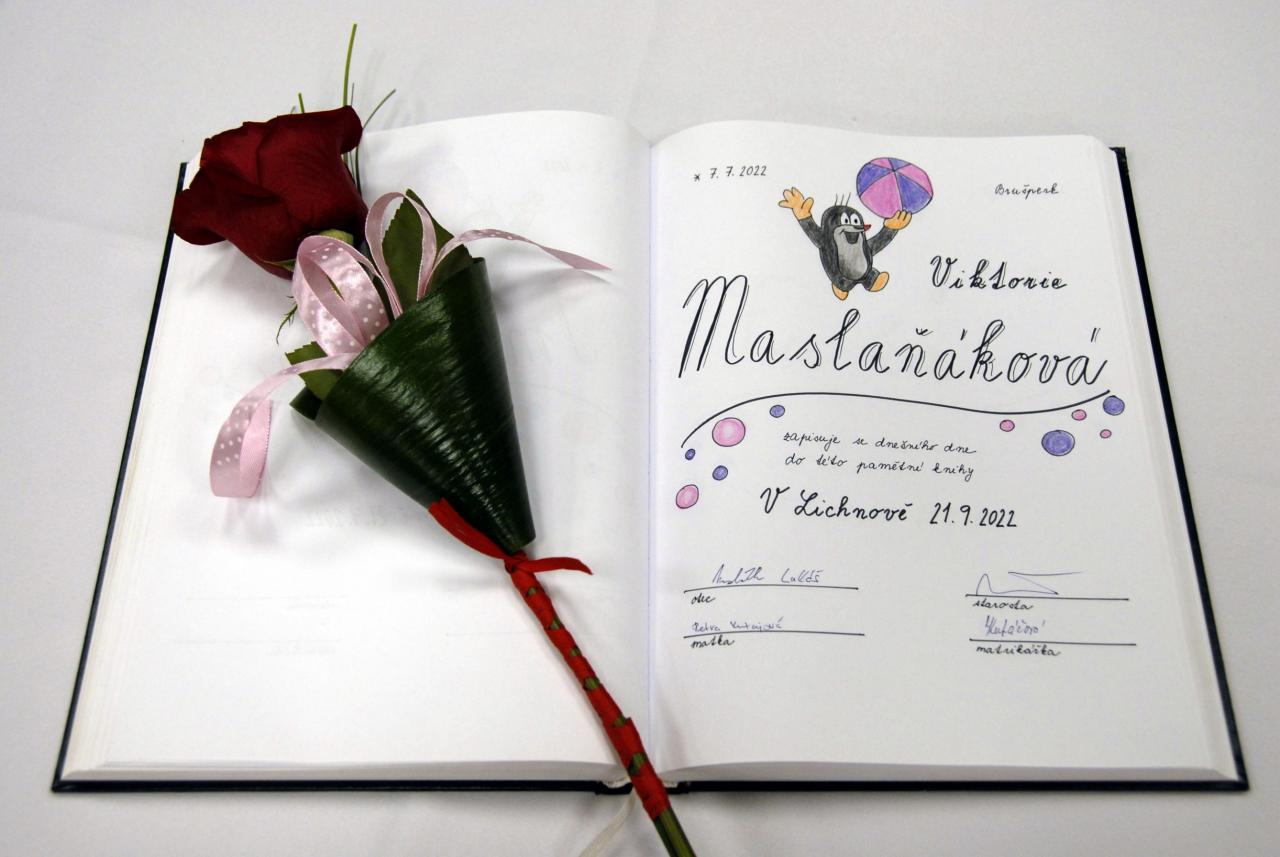 * 7. 7. 2022
Brušperk
Viktorie
Maslaňáková
zapisuje se dnešního dne
do této pamětní knihy
V Lichnově 21.9.2022
Lukáš
otec
starosta
Petra
matka
matrikářka